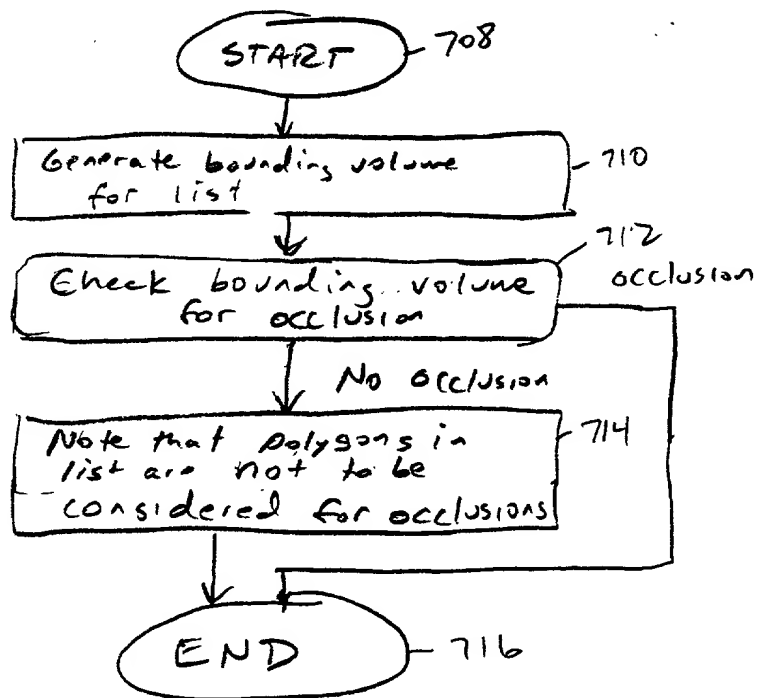 START 708
Generate bounding volume 710
for list
712
Check bounding volume occlusion
for occlusion
No occlusion
Note that polygons in 714
list are not to be
considered for occlusions
END 716